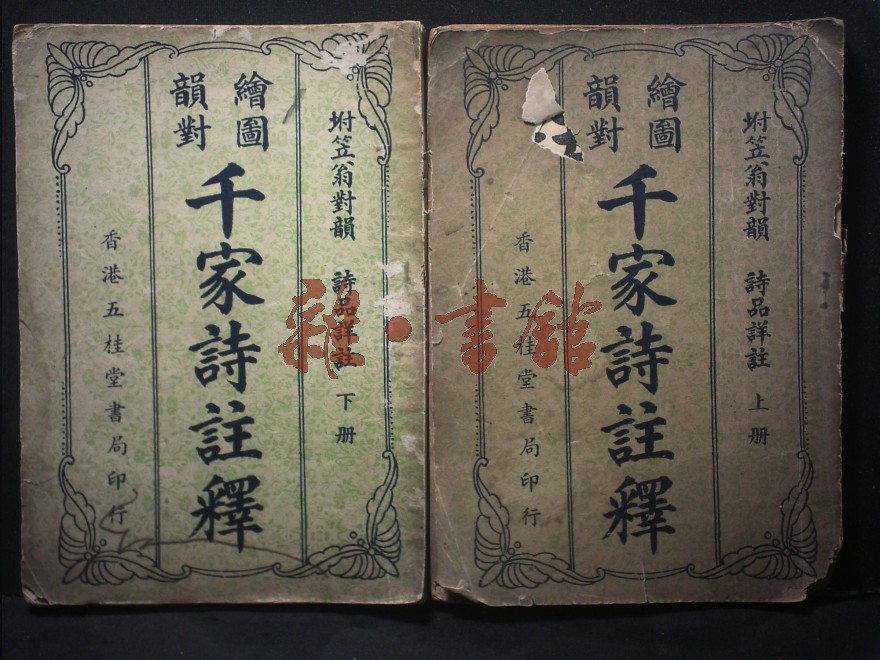 繪圖
韻對
千家詩註釋
坿笠翁對韻 詩品詳註 上册
香港五桂堂書局印行
繪圖
韻對
千家詩註釋
坿笠翁對韻 詩品詳註 下册
香港五桂堂書局印行
雜·書館